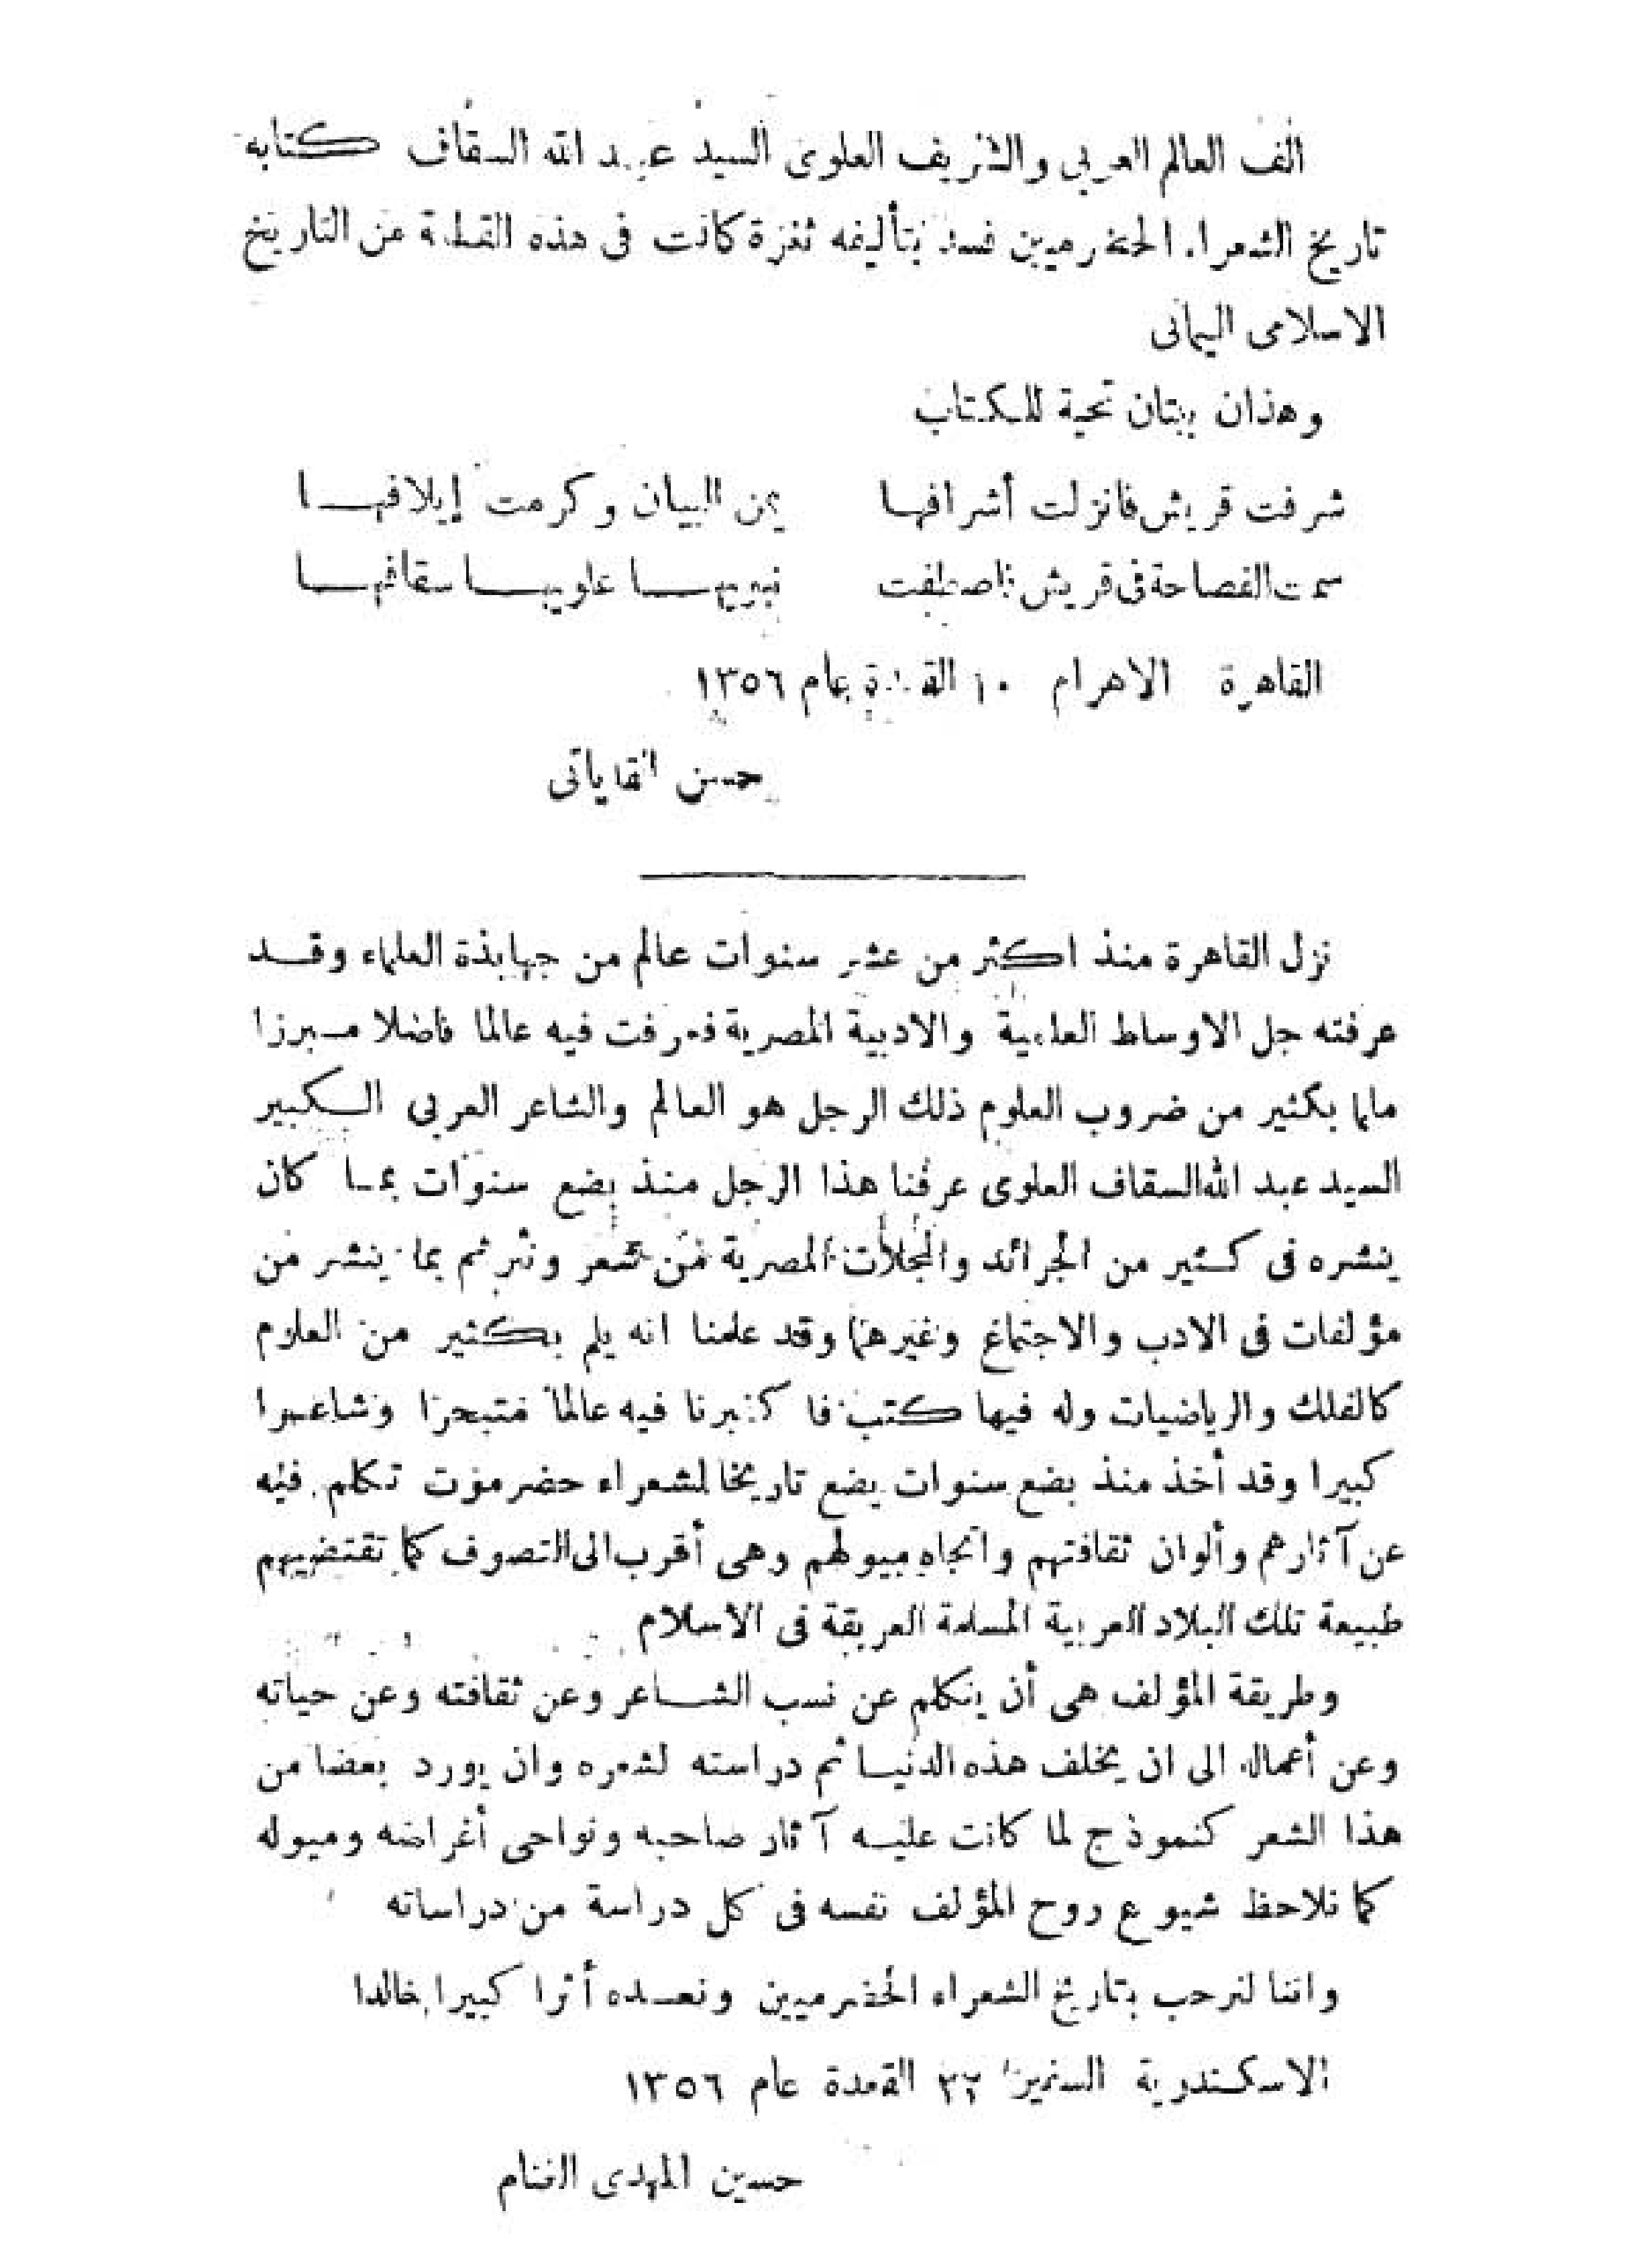 ألف العالم العربي والشريف العلوى السيد عبد الله السقاف كتابه
تاريخ الشعراء الحضرميين فسد بتأليفه ثغرة كانت فى هذه القطعة من التاريخ
الاسلامى اليمانى
وهذان بيتان تحية للكتاب
شرفت قريش فانزلت أشرافها يمن البيان وكرمت إيلافهــا
سمت الفصاحة فى قريش فاصطفت نبويهــا علويهــا سقافهــا
القاهرة الاهرام ١٠ القعدة عام ١٣٥٦
حسن القاياتى
نزل القاهرة منذ اكثر من عشر سنوات عالم من جهابذة العلماء وقــد
عرفته جل الاوساط العلمية والادبية المصرية فعرفت فيه عالما فاضلا مــبرزا
ملما بكثير من ضروب العلوم ذلك الرجل هو العالم والشاعر العربى الــكبير
السيد عبد الله السقاف العلوى عرفنا هذا الرجل منذ بضع سنوات بمــا كان
ينشره فى كثير من الجرائد والمجلات المصرية من شعر ونثر ثم بما ينشر من
مؤلفات فى الادب والاجتماع وغيرهما وقد علمنا انه يلم بكثير من العلوم
كالفلك والرياضيات وله فيها كتب فا كبرنا فيه عالما متبحرا وشاعــرا
كبيرا وقد أخذ منذ بضع سنوات يضع تاريخا لشعراء حضرموت تكلم فيه
عن آثارهم وألوان ثقافتهم واتجاه ميولهم وهى أقرب الى التصوف كما تقتضيهم
طبيعة تلك البلاد العربية المسلمة العريقة فى الاسلام
وطريقة المؤلف هى أن يتكلم عن نسب الشــاعر وعن ثقافته وعن حياته
وعن أعماله الى ان يخلف هذه الدنيــا ثم دراسته لشعره وان يورد بعضا من
هذا الشعر كنموذج لما كانت عليــه آثار صاحبه ونواحى أغراضه وميوله
كما نلاحظ شيوع روح المؤلف نفسه فى كل دراسة من دراساته
واننا لنرحب بتاريخ الشعراء الحضرميين ونعــده أثرا كبيرا خالدا
الاسكندرية ٢٢ القعدة عام ١٣٥٦
حسين المهدى الغنام